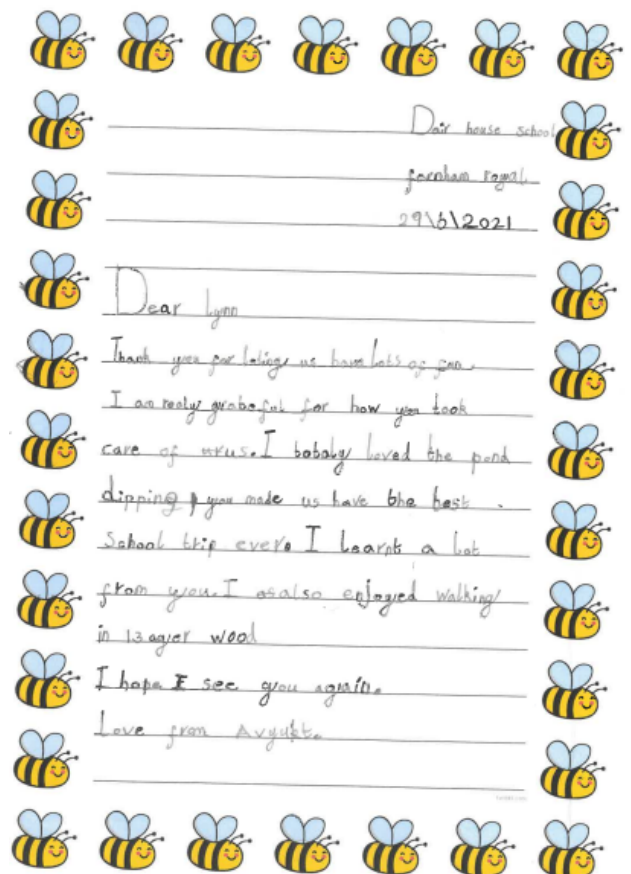 Dair house school
farnham royal
29\6\2021
Dear Lynn
Thank you for leting us have lots of fun.
I am realy grateful for how you took
care of us. I totaly loved the pond
dipping, you made us have the best
School trip ever. I learnt a lot
from you. I also enjoyed walking
in 13 ager wood
I hope I see you again.
Love from Avyukt.